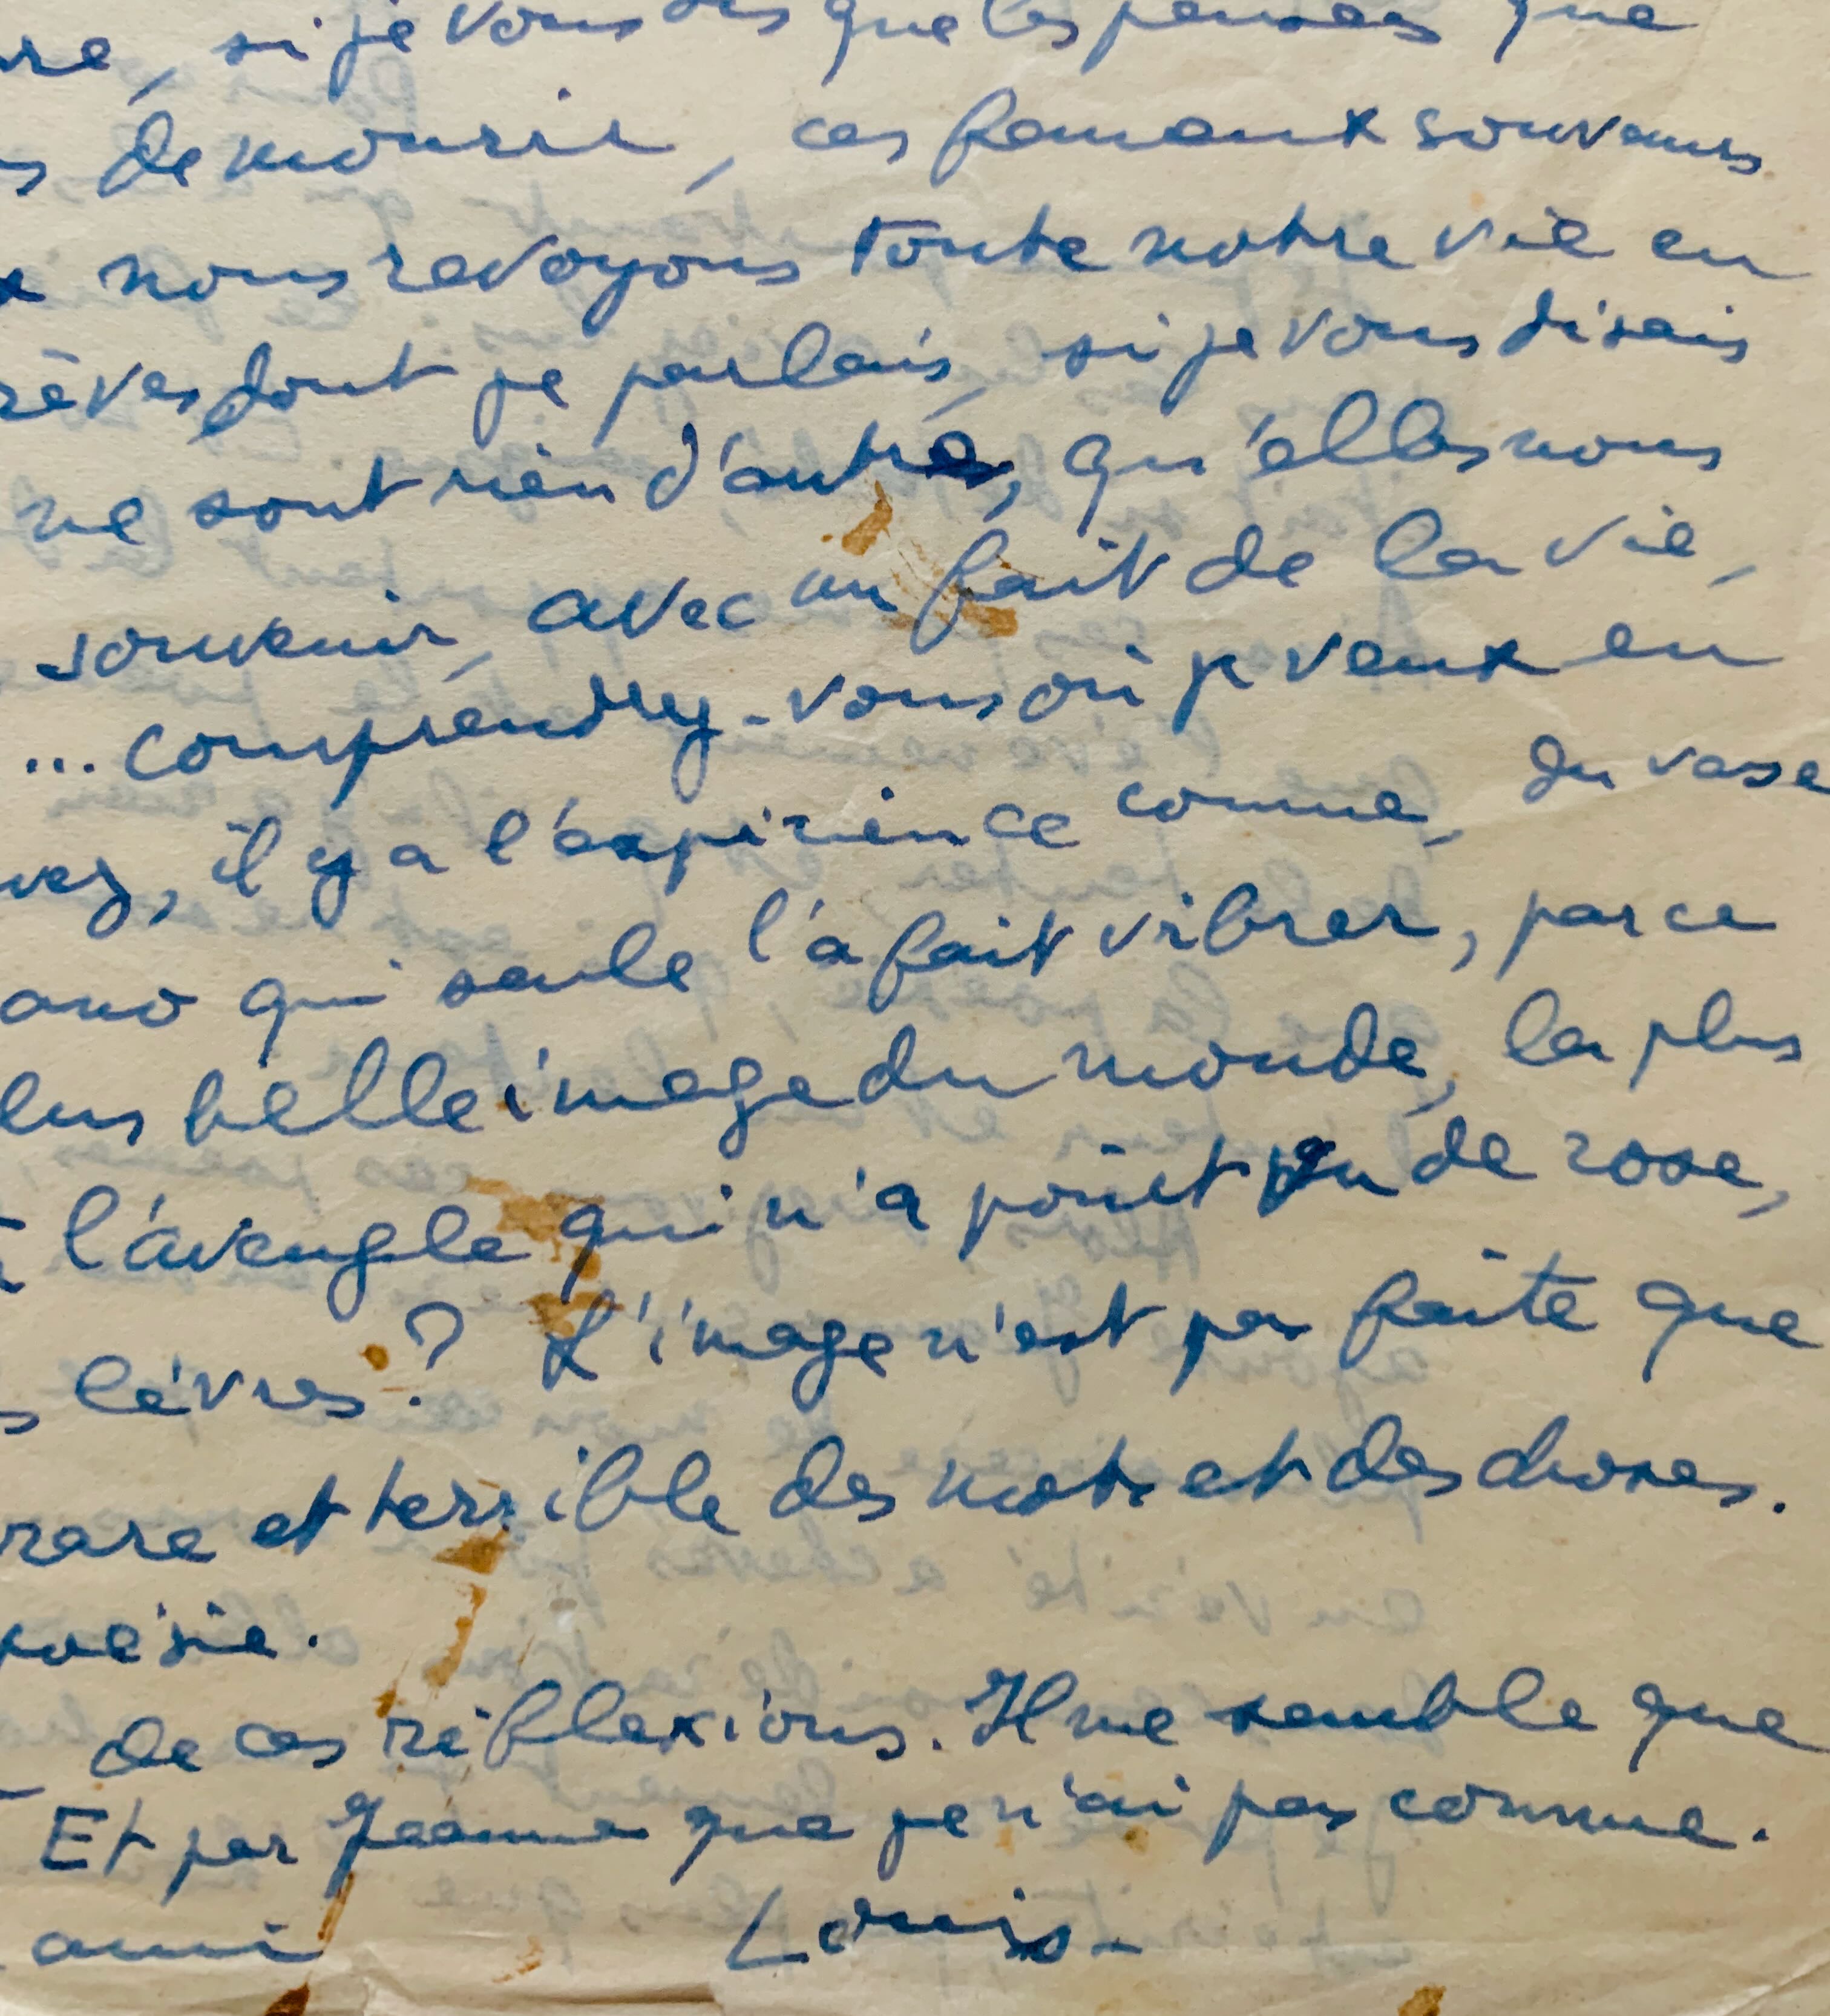 si je vous dis que les pensées que
de mourir, ces fameux souvenirs
nous revoyons toute notre vie en
rêves dont je parlais, si je vous disais
ne sont rien d'autre, qu'elles nous
souvenir, avec un fait de la vie,
... comprendrez-vous où je veux en
vez, il y a l'expérience comme, du vase
ano qui seule l'a fait vibrer, parce
lus belle image du monde, la plus
l'aveugle qui n'a point vu de rose,
s lèvres? L'image n'est pas faite que
rare et terrible des mots et des choses.
poésie.
de ces réflexions. Il me semble que
Et par Jeanne que je n'ai pas connue.
ami Louis-